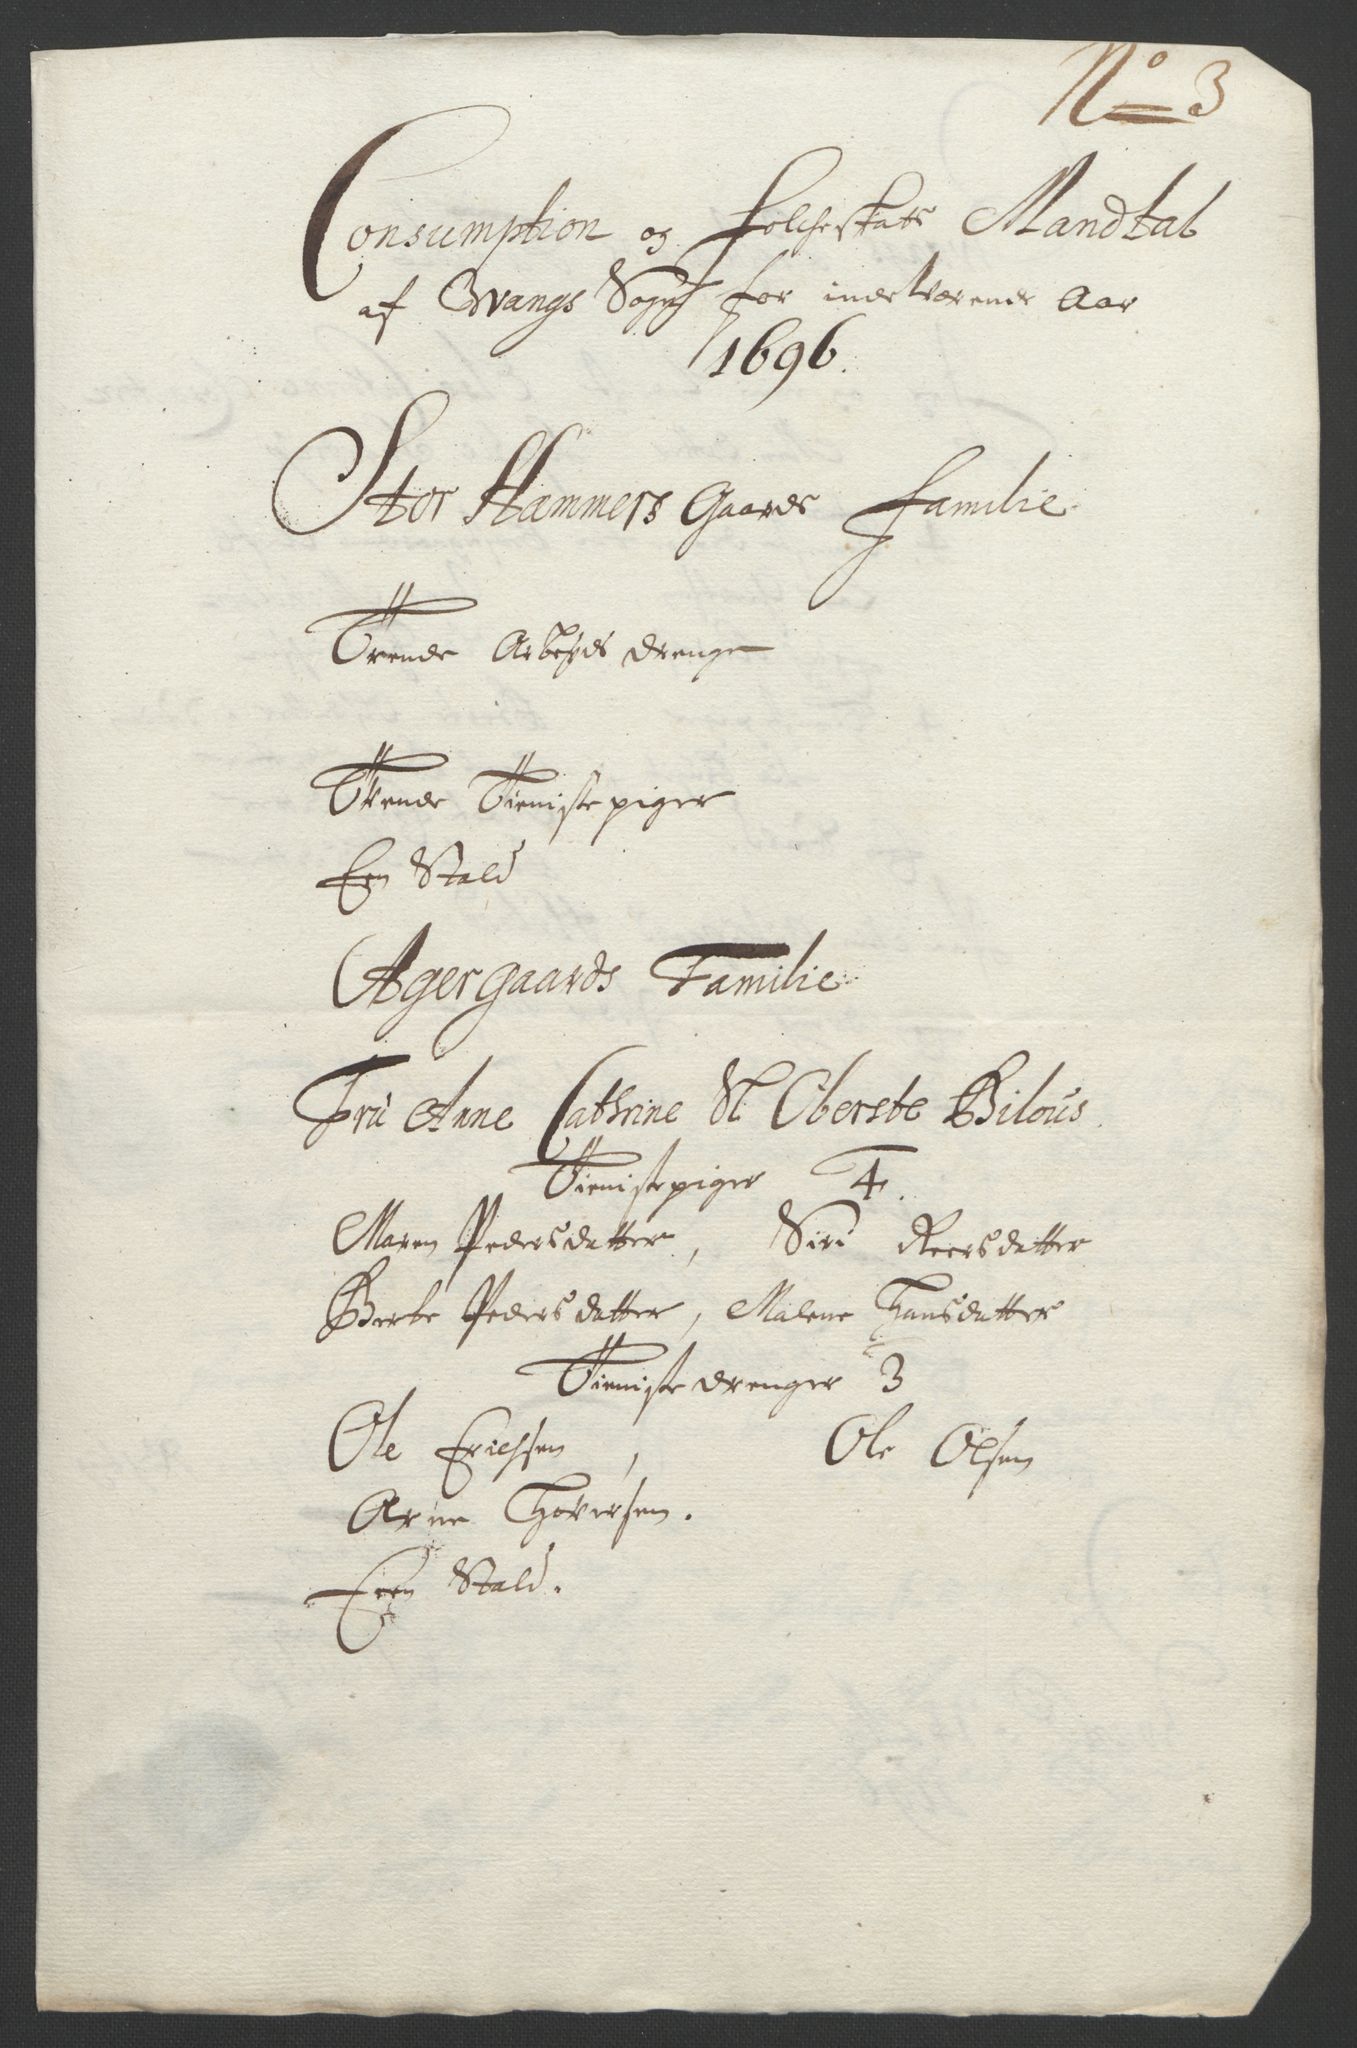 No 3
Consumption og Folcheskats Mandtal
af Wangs Sogn for indeværende Aar
1696.
Stor Hammers Gaards Familie
Trende Arbeyds drenge
Tvende Tienistepiger
Een Stald
Agergaards Familie
Fru Anne Cathrine Sl Oberste Bilous
Tienistepiger 4.
Maren Pedersdatter, Siri Reersdatter
Berte Pedersdatter, Malene Hansdatter
Tieniste drenger 3
Ole Erichsen, Ole Olsen
Arne Hoversen.
Een Stald.